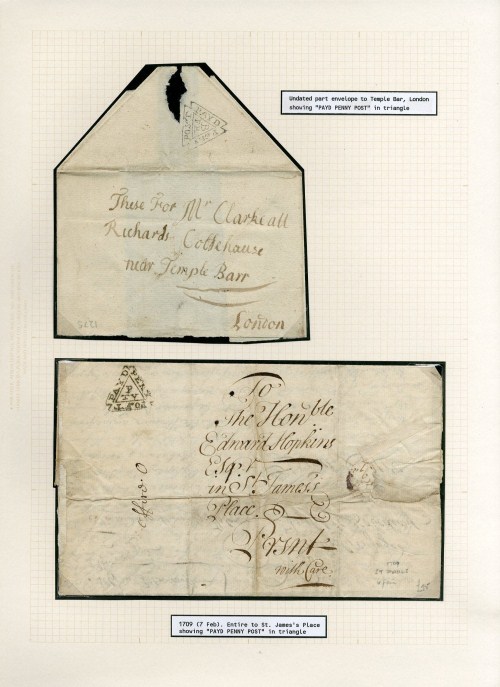 Undated part envelope to Temple Bar, London
showing "PAYD PENNY POST" in triangle
PAYD
These For Mr Clarke att
Richards Coffehause
near Temple Barr
London
1275
PAYD
PENY
To
The Honble
Edward Hopkins
Esqr
in St. James's
Place
Prsnt
with Care
1709
£95
1709 (7 Feb). Entire to St. James's Place
showing "PAYD PENNY POST" in triangle